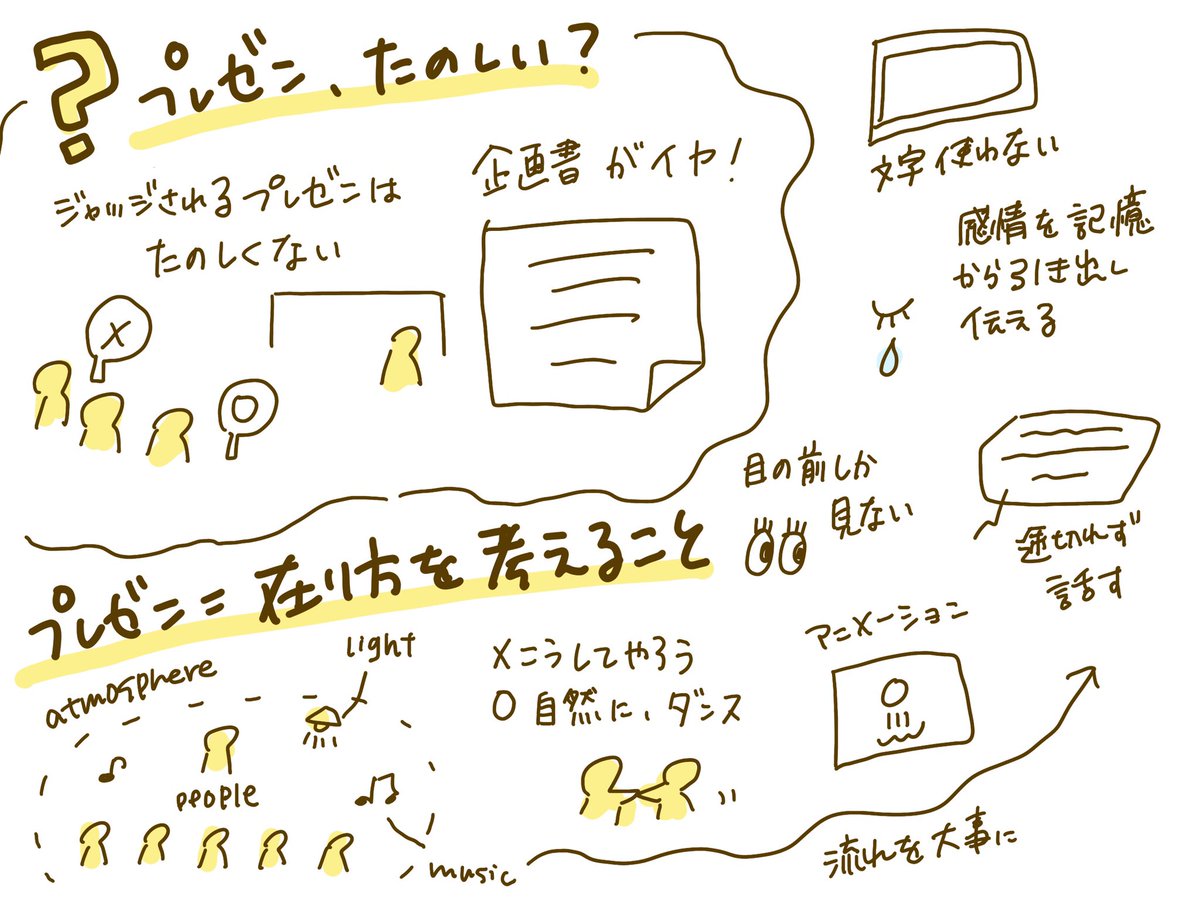 ?
プレゼン、たのしい?
ジャッジされるプレゼンは
たのしくない
X
O
企画書がイヤ!
文字使わない
感情を記憶
から引き出し
伝える
目の前しか
見ない
途切れず
話す
プレゼン=在り方を考えること
atmosphere
light
people
music
Xこうしてやろう
O自然に、ダンス
アニメーション
流れを大事に